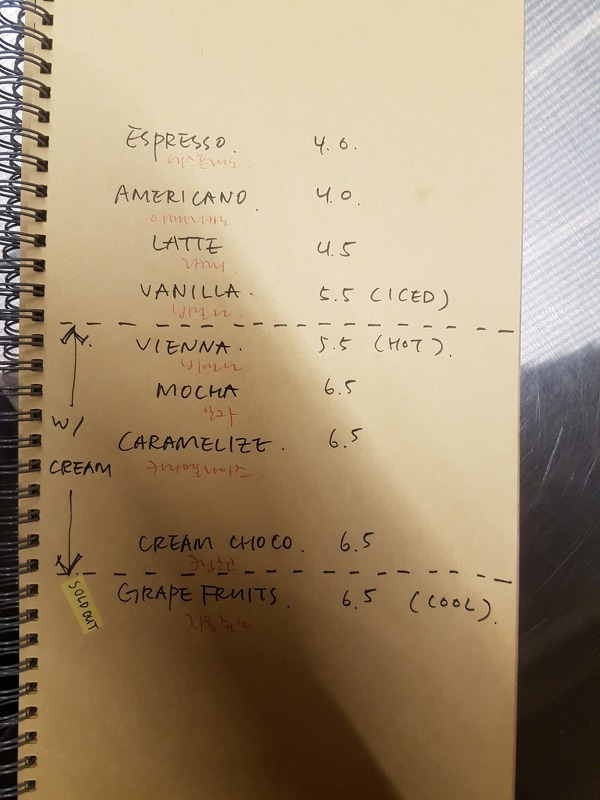 ESPRESSO. 4.0.
에스프레소
AMERICANO. 4.0.
아메리카노
LATTE 4.5
라떼
VANILLA. 5.5 (ICED)
바닐라
VIENNA. 5.5 (HOT).
비엔나
MOCHA 6.5
모카
W/
CREAM
CARAMELIZE. 6.5
카라멜라이즈
CREAM CHOCO. 6.5
크림초코
SOLD OUT
GRAPE FRUITS. 6.5 (COOL).
자몽쥬스